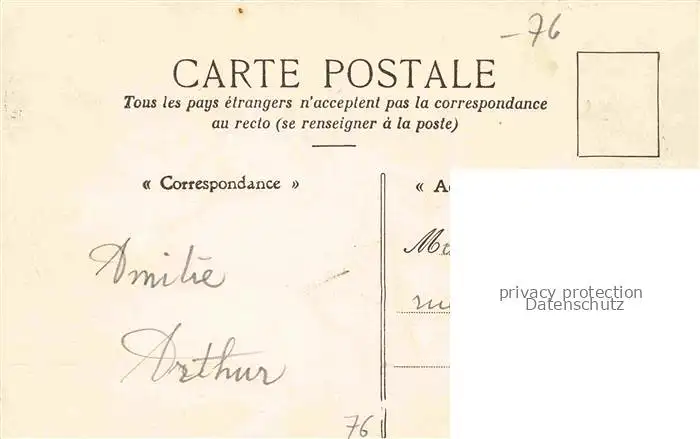 -76
CARTE POSTALE
Tous les pays étrangers n'acceptent pas la correspondance
au recto (se renseigner à la poste)
« Correspondance »
« A
M
Amitié
privacy protection
Datenschutz
Arthur
76